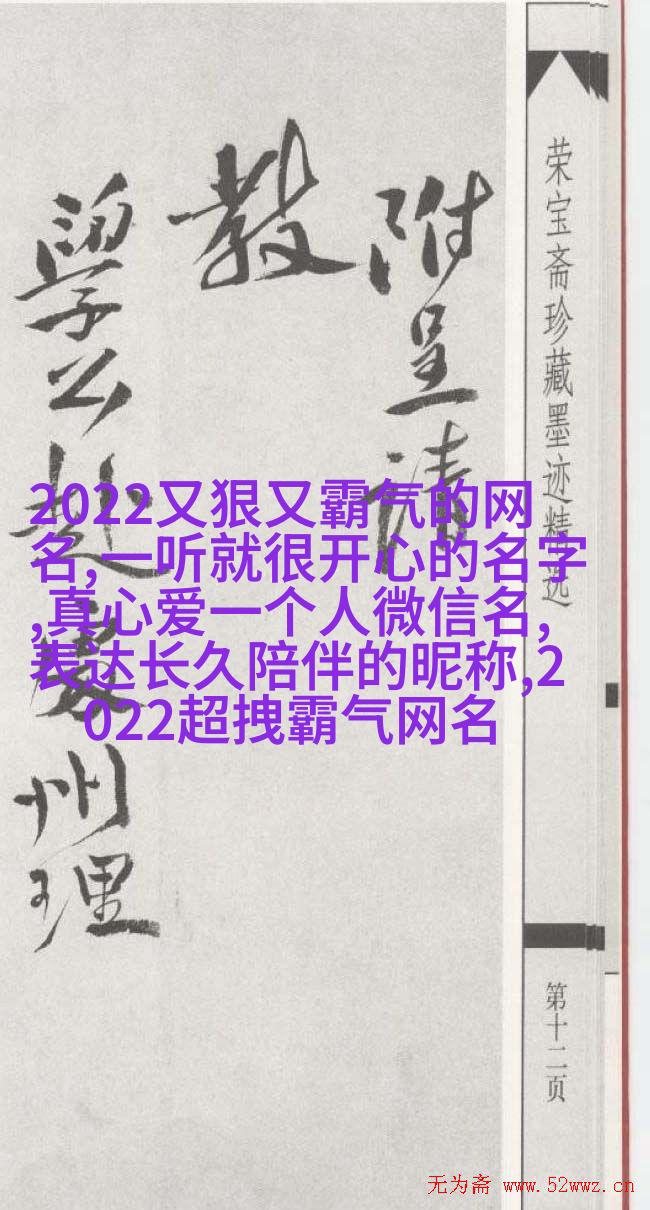 荣宝斋珍藏墨迹精选
第十二页
附呈请
教
學公赴州理
2022又狠又霸气的网
名,一听就很开心的名字
,真心爱一个人微信名,
表达长久陪伴的昵称,2
022超拽霸气网名
无为斋 www.52wwz.cn